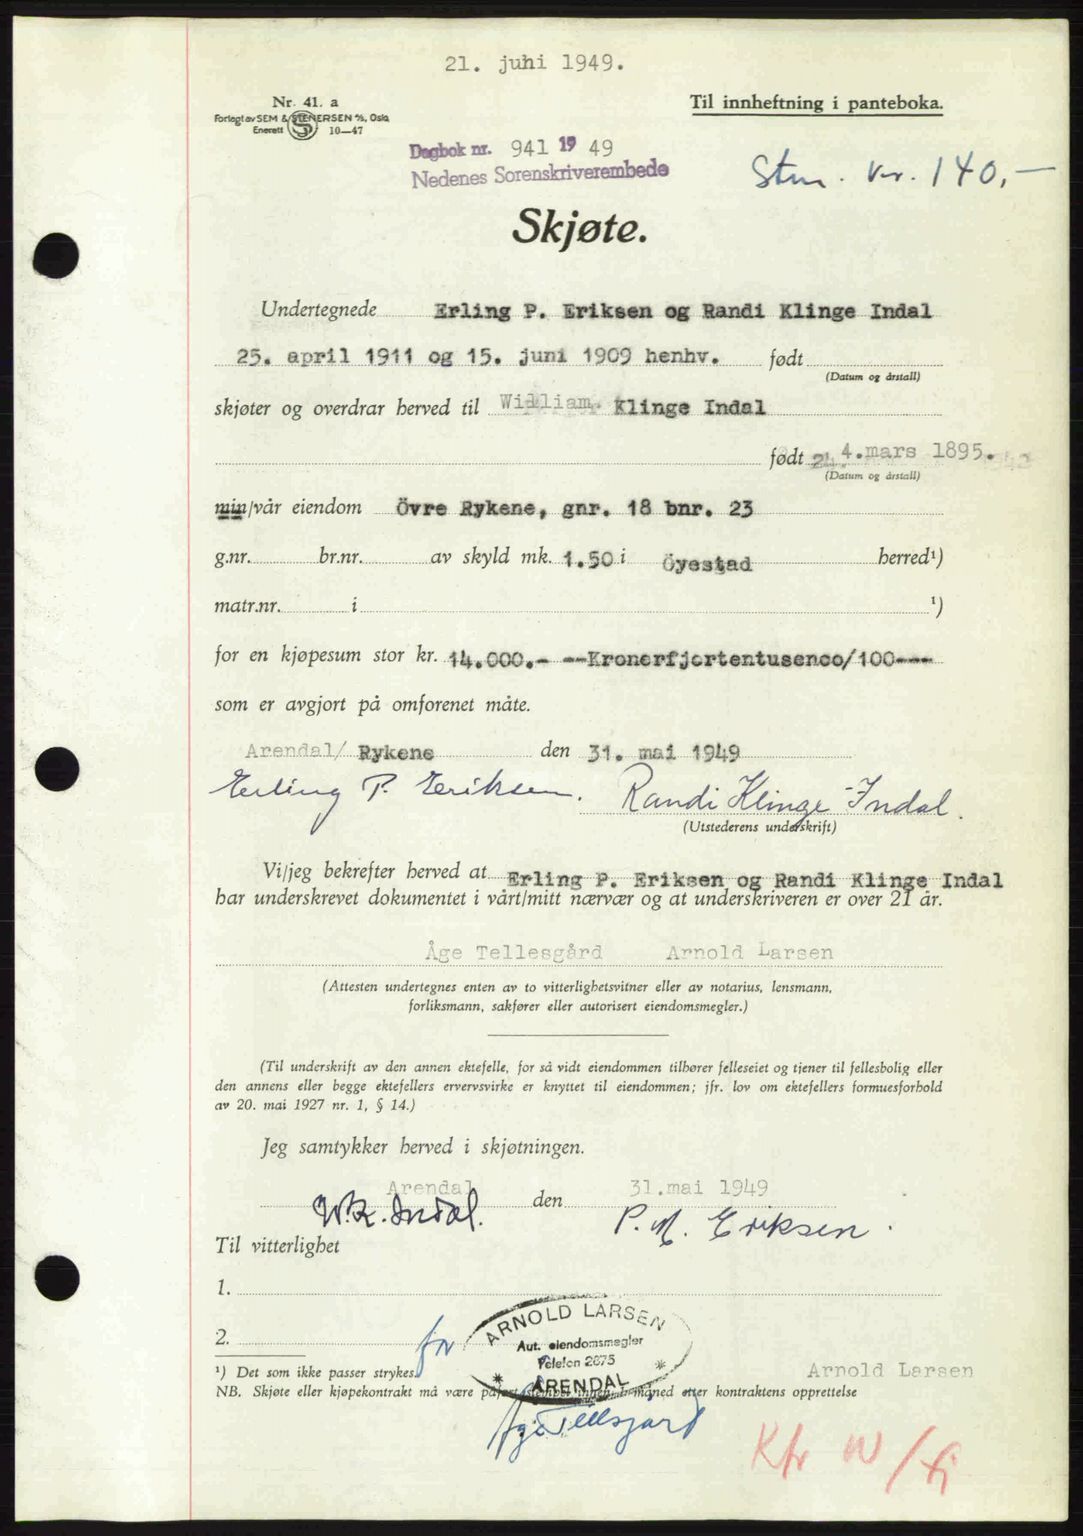 21. juni 1949.
Nr. 41. a
Til innheftning i panteboka.
Forlegt av SEM & STENERSEN A/S, Oslo
Enerett 10—47
Dagbok nr. 941 19 49
Nedenes Sorenskriverembede
Stm. kr. 140,—
Skjøte.
Undertegnede Erling P. Eriksen og Randi Klinge Indal
25. april 1911 og 15. juni 1909 henhv. født
(Datum og årstall)
skjøter og overdrar herved til William Klinge Indal
født 4.mars 1895.
(Datum og årstall)
min/vår eiendom Övre Rykene, gnr. 18 bnr. 23
g.nr. br.nr. av skyld mk. 1.50 i Öyestad herred¹)
matr.nr. i ¹)
for en kjøpesum stor kr. 14.000.- --Kronerfjortentusenoo/100---
som er avgjort på omforenet måte.
Arendal/ Rykene den 31. mai 1949
Erling P. Eriksen. Randi Klinge Indal.
(Utstederens underskrift)
Vi/jeg bekrefter herved at Erling P. Eriksen og Randi Klinge Indal
har underskrevet dokumentet i vårt/mitt nærvær og at underskriveren er over 21 år.
Åge Tellesgård Arnold Larsen
(Attesten undertegnes enten av to vitterlighetsvitner eller av notarius, lensmann,
forliksmann, sakfører eller autorisert eiendomsmegler.)
(Til underskrift av den annen ektefelle, for så vidt eiendommen tilhører felleseiet og tjener til fellesbolig eller
den annens eller begge ektefellers ervervsvirke er knyttet til eiendommen; jfr. lov om ektefellers formuesforhold
av 20. mai 1927 nr. 1, § 14.)
Jeg samtykker herved i skjøtningen.
Arendal den 31.mai 1949
W.K. Indal. P. M. Eriksen.
Til vitterlighet
1.
ARNOLD LARSEN
2. for
Aut. eiendomsmegler
Telefon 2675
* ARENDAL *
¹) Det som ikke passer strykes.
Arnold Larsen
NB. Skjøte eller kjøpekontrakt må være påført stempel innen 1 måned etter kontraktens opprettelse
Åge Tellesgård
Kfr